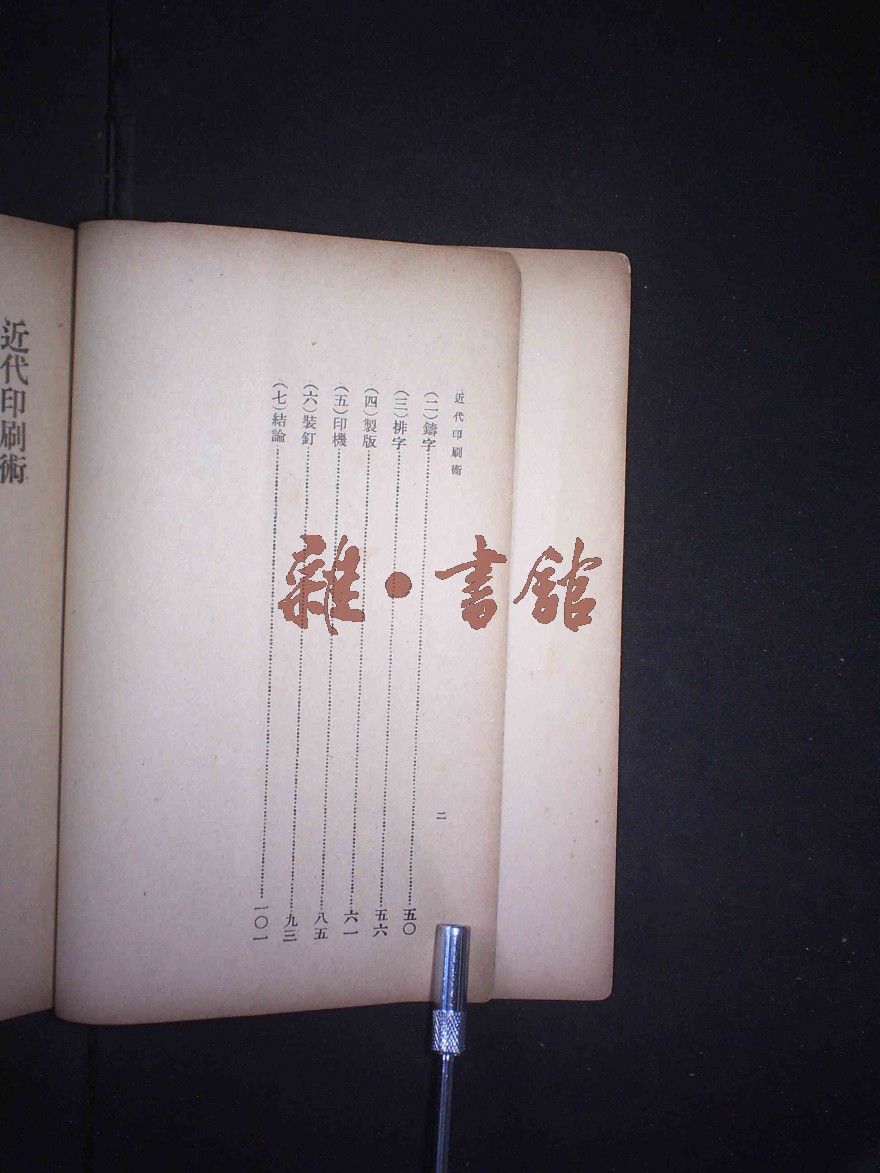 近代印刷術
二
(二)鑄字……五〇
(三)排字……五六
(四)製版……六一
(五)印機……八五
(六)裝釘……九三
(七)結論……一〇一
近代印刷術
雜•書館